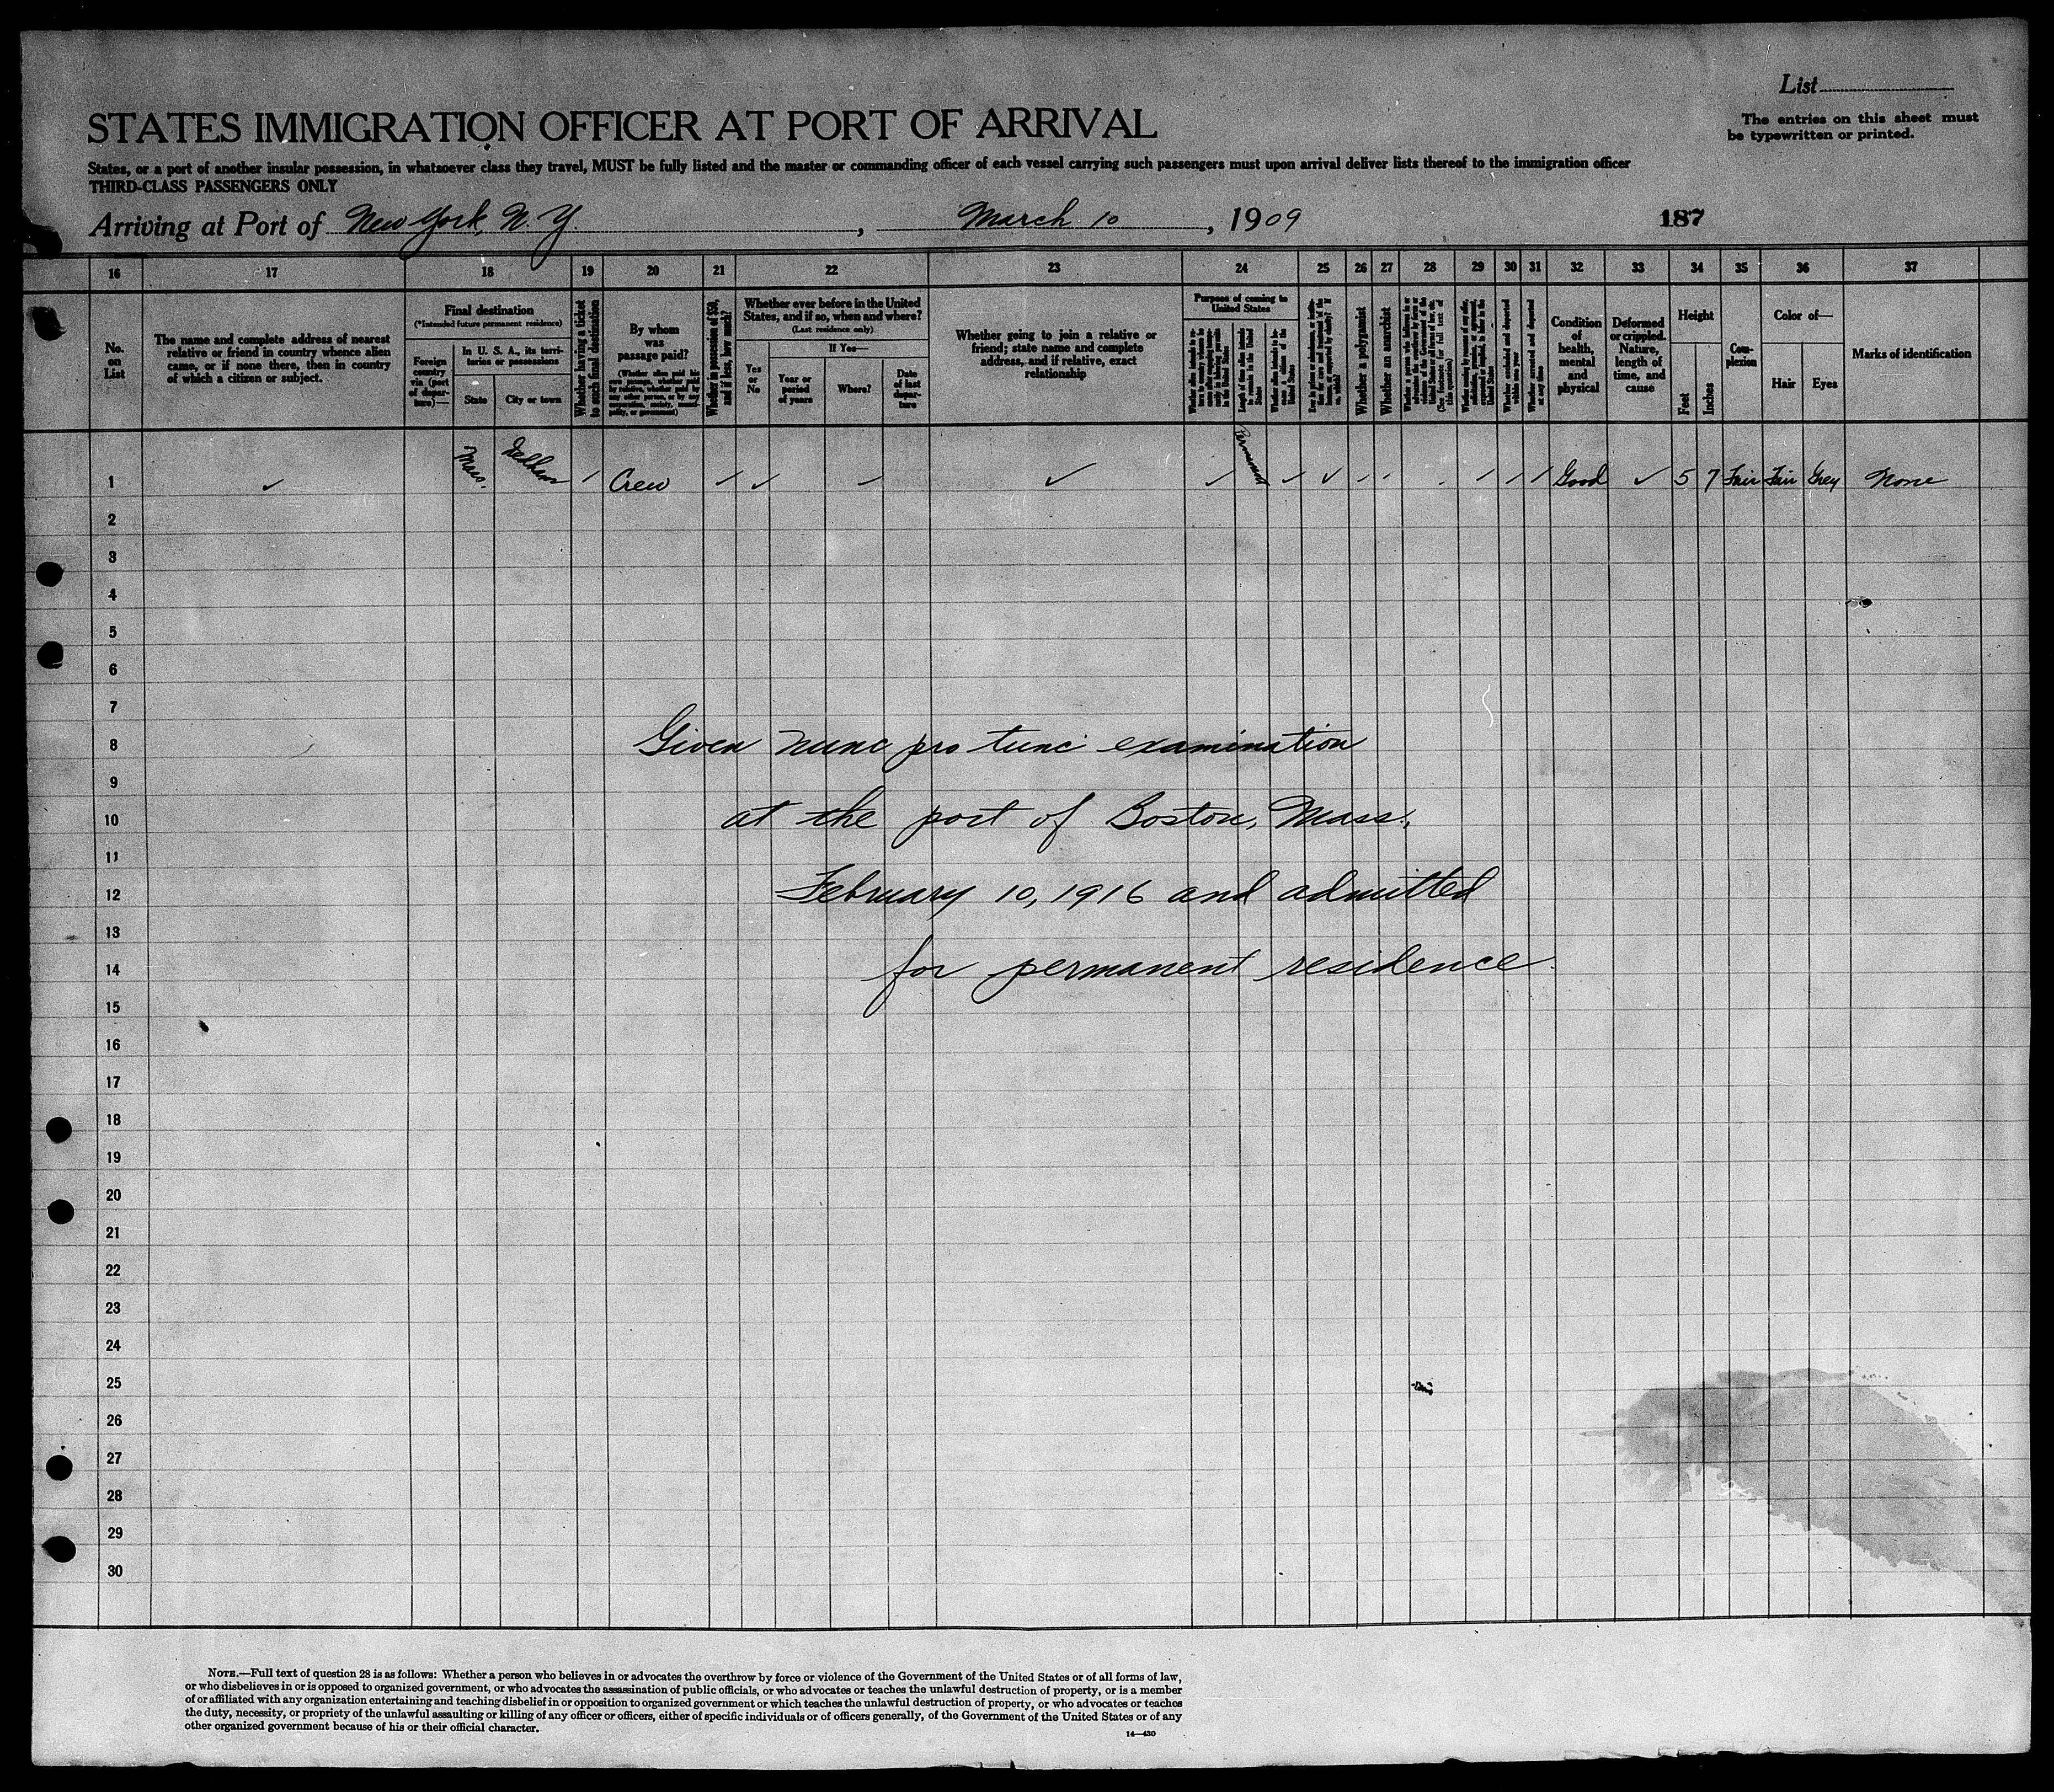 List
STATES IMMIGRATION OFFICER AT PORT OF ARRIVAL
The entries on this sheet must
be typewritten or printed.
States, or a port of another insular possession, in whatsoever class they travel, MUST be fully listed and the master or commanding officer of each vessel carrying such passengers must upon arrival deliver lists thereof to the immigration officer
THIRD-CLASS PASSENGERS ONLY
Arriving at Port of New York, N. Y. , March 10 , 1909
187
16 17 18 19 20 21 22 23 24 25 26 27 28 29 30 31 32 33 34 35 36 37
No.
on
List
The name and complete address of nearest
relative or friend in country whence alien
came, or if none there, then in country
of which a citizen or subject.
Final destination
(*Intended future permanent residence)
Foreign
country
via (port
of depar-
ture)—
In U. S. A., its terri-
tories or possessions
State
City or town
Whether having a ticket
to such final destination
By whom
was
passage paid?
Whether in possession of $50,
and if less, how much?
Whether ever before in the United
States, and if so, when and where?
(Last residence only)
Yes
or
No
If Yes—
Year or
period
of years
Where?
Date
of last
depar-
ture
Whether going to join a relative or
friend; state name and complete
address, and if relative, exact
relationship
Purpose of coming to
United States
Whether a polygamist
Whether an anarchist
Condition
of
health,
mental
and
physical
Deformed
or crippled.
Nature,
length of
time, and
cause
Height
Feet
Inches
Com-
plexion
Color of—
Hair
Eyes
Marks of identification
1 Mass. Dedham Crew Permanent Good 5 7 Fair Fair Grey None
2
3
4
5
6
7
8 Given nunc pro tunc examination
9
10 at the port of Boston, Mass.,
11
12 February 10, 1916 and admitted
13
14 for permanent residence.
15
16
17
18
19
20
21
22
23
24
25
26
27
28
29
30
NOTE.—Full text of question 28 is as follows: Whether a person who believes in or advocates the overthrow by force or violence of the Government of the United States or of all forms of law,
or who disbelieves in or is opposed to organized government, or who advocates the assassination of public officials, or who advocates or teaches the unlawful destruction of property, or is a member
of or affiliated with any organization entertaining and teaching disbelief in or opposition to organized government or which teaches the unlawful destruction of property, or who advocates or teaches
the duty, necessity, or propriety of the unlawful assaulting or killing of any officer or officers, either of specific individuals or of officers generally, of the Government of the United States or of any
other organized government because of his or their official character.
14—430